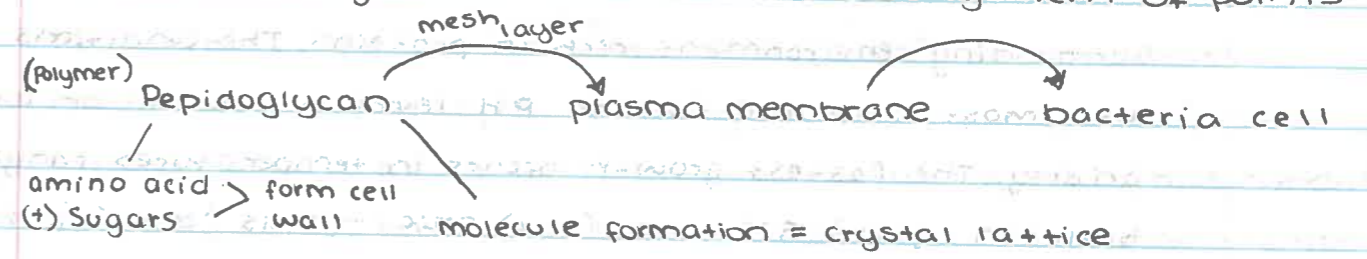 mesh layer
(Polymer)
Pepidoglycan plasma membrane bacteria cell
amino acid > form cell
(+) Sugars wall
molecule formation = crystal lattice